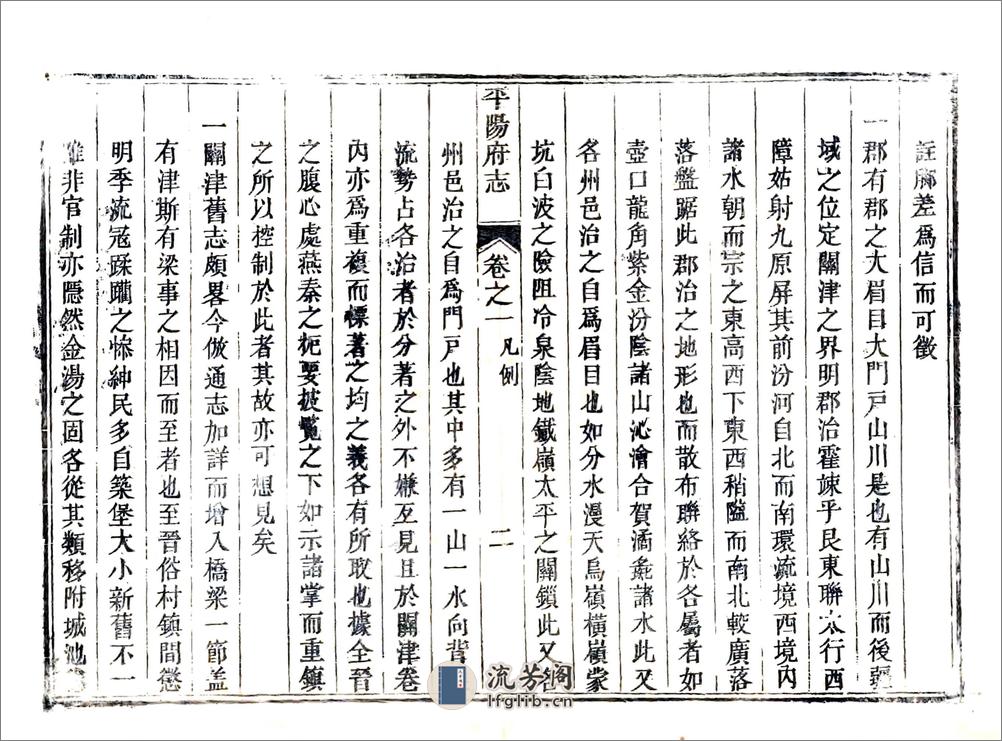 註庶差為信而可徵
一郡有郡之大眉目大門戸山川是也有山川而後疆
域之位定關津之界明郡治霍竦乎艮東聯太行西
障姑射九原屏其前汾河自北而南環流境西境內
諸水朝而宗之東高西下東西稍隘而南北較廣落
落盤踞此郡治之地形也而散布聯絡於各屬者如
壺口龍角紫金汾陰諸山沁澮合賀潏彘諸水此又
各州邑治之自爲眉目也如分水漫天烏嶺橫嶺蒙
坑白波之險阻冷泉陰地鐵嶺太平之關鎖此又各
平陽府志
卷之一
凡例
二
州邑治之自爲門戸也其中多有一山一水向背
流勢占各治者於分著之外不嫌互見且於關津卷
內亦爲重複而標著之均之義各有所取也據全晉
之腹心處燕秦之扼要披覧之下如示諸掌而重鎭
之所以控制於此者其故亦可想見矣
一關津舊志頗畧今倣通志加詳而增入橋梁一節盖
有津斯有梁事之相因而至者也至晉俗村鎭間懲
明季流冦蹂躪之慘紳民多自築堡大小新舊不一
雖非官制亦隱然金湯之固各從其類移附城池
流芳阁
lfglib.cn